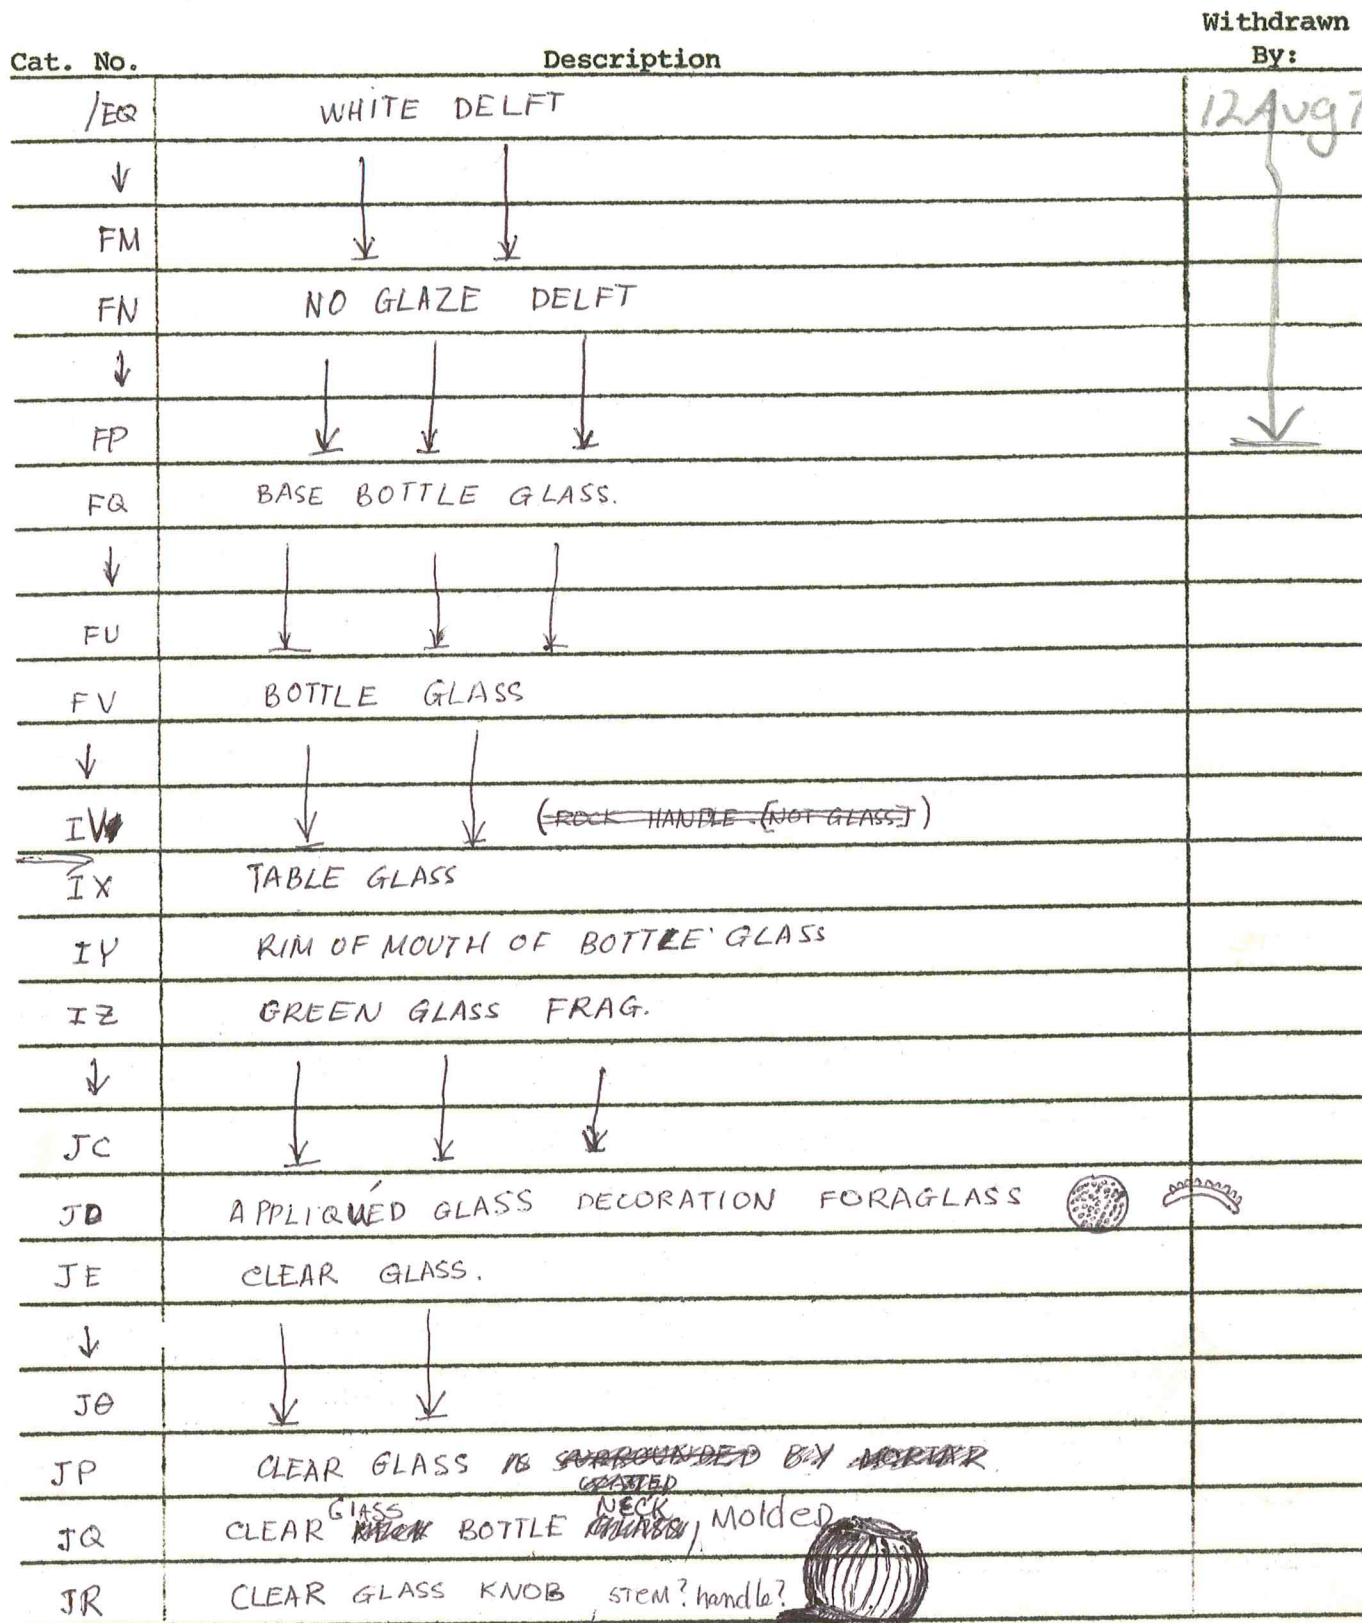 Withdrawn
Cat. No. Description By:
/EQ WHITE DELFT 12 Aug 7
↓
FM
FN NO GLAZE DELFT
↓
FP
FQ BASE BOTTLE GLASS.
↓
FU
FV BOTTLE GLASS
↓
IV (ROCK HANDLE. [NOT GLASS])
IX TABLE GLASS
IY RIM OF MOUTH OF BOTTLE GLASS
IZ GREEN GLASS FRAG.
↓
JC
JD APPLIQUÉD GLASS DECORATION FOR A GLASS
JE CLEAR GLASS.
↓
JO
JP CLEAR GLASS IS SURROUNDED BY MORTAR
GLASS NECK
JQ CLEAR BOTTLE GLASS, Molded
JR CLEAR GLASS KNOB STEM? handle?